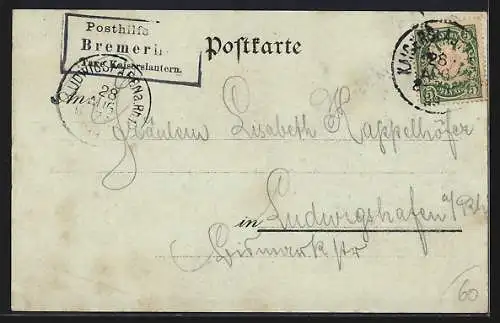 Posthilfs
Bremerh
Taxe Kaiserslautern.
Postkarte
LUDWIGSHAFEN a. Rh.
28
AUG
KAISERSL
28
AUG
5 5
Fräulein Elisabeth Kappelhöfer
in Ludwigshafen a/Rh
Bismarkstr
60